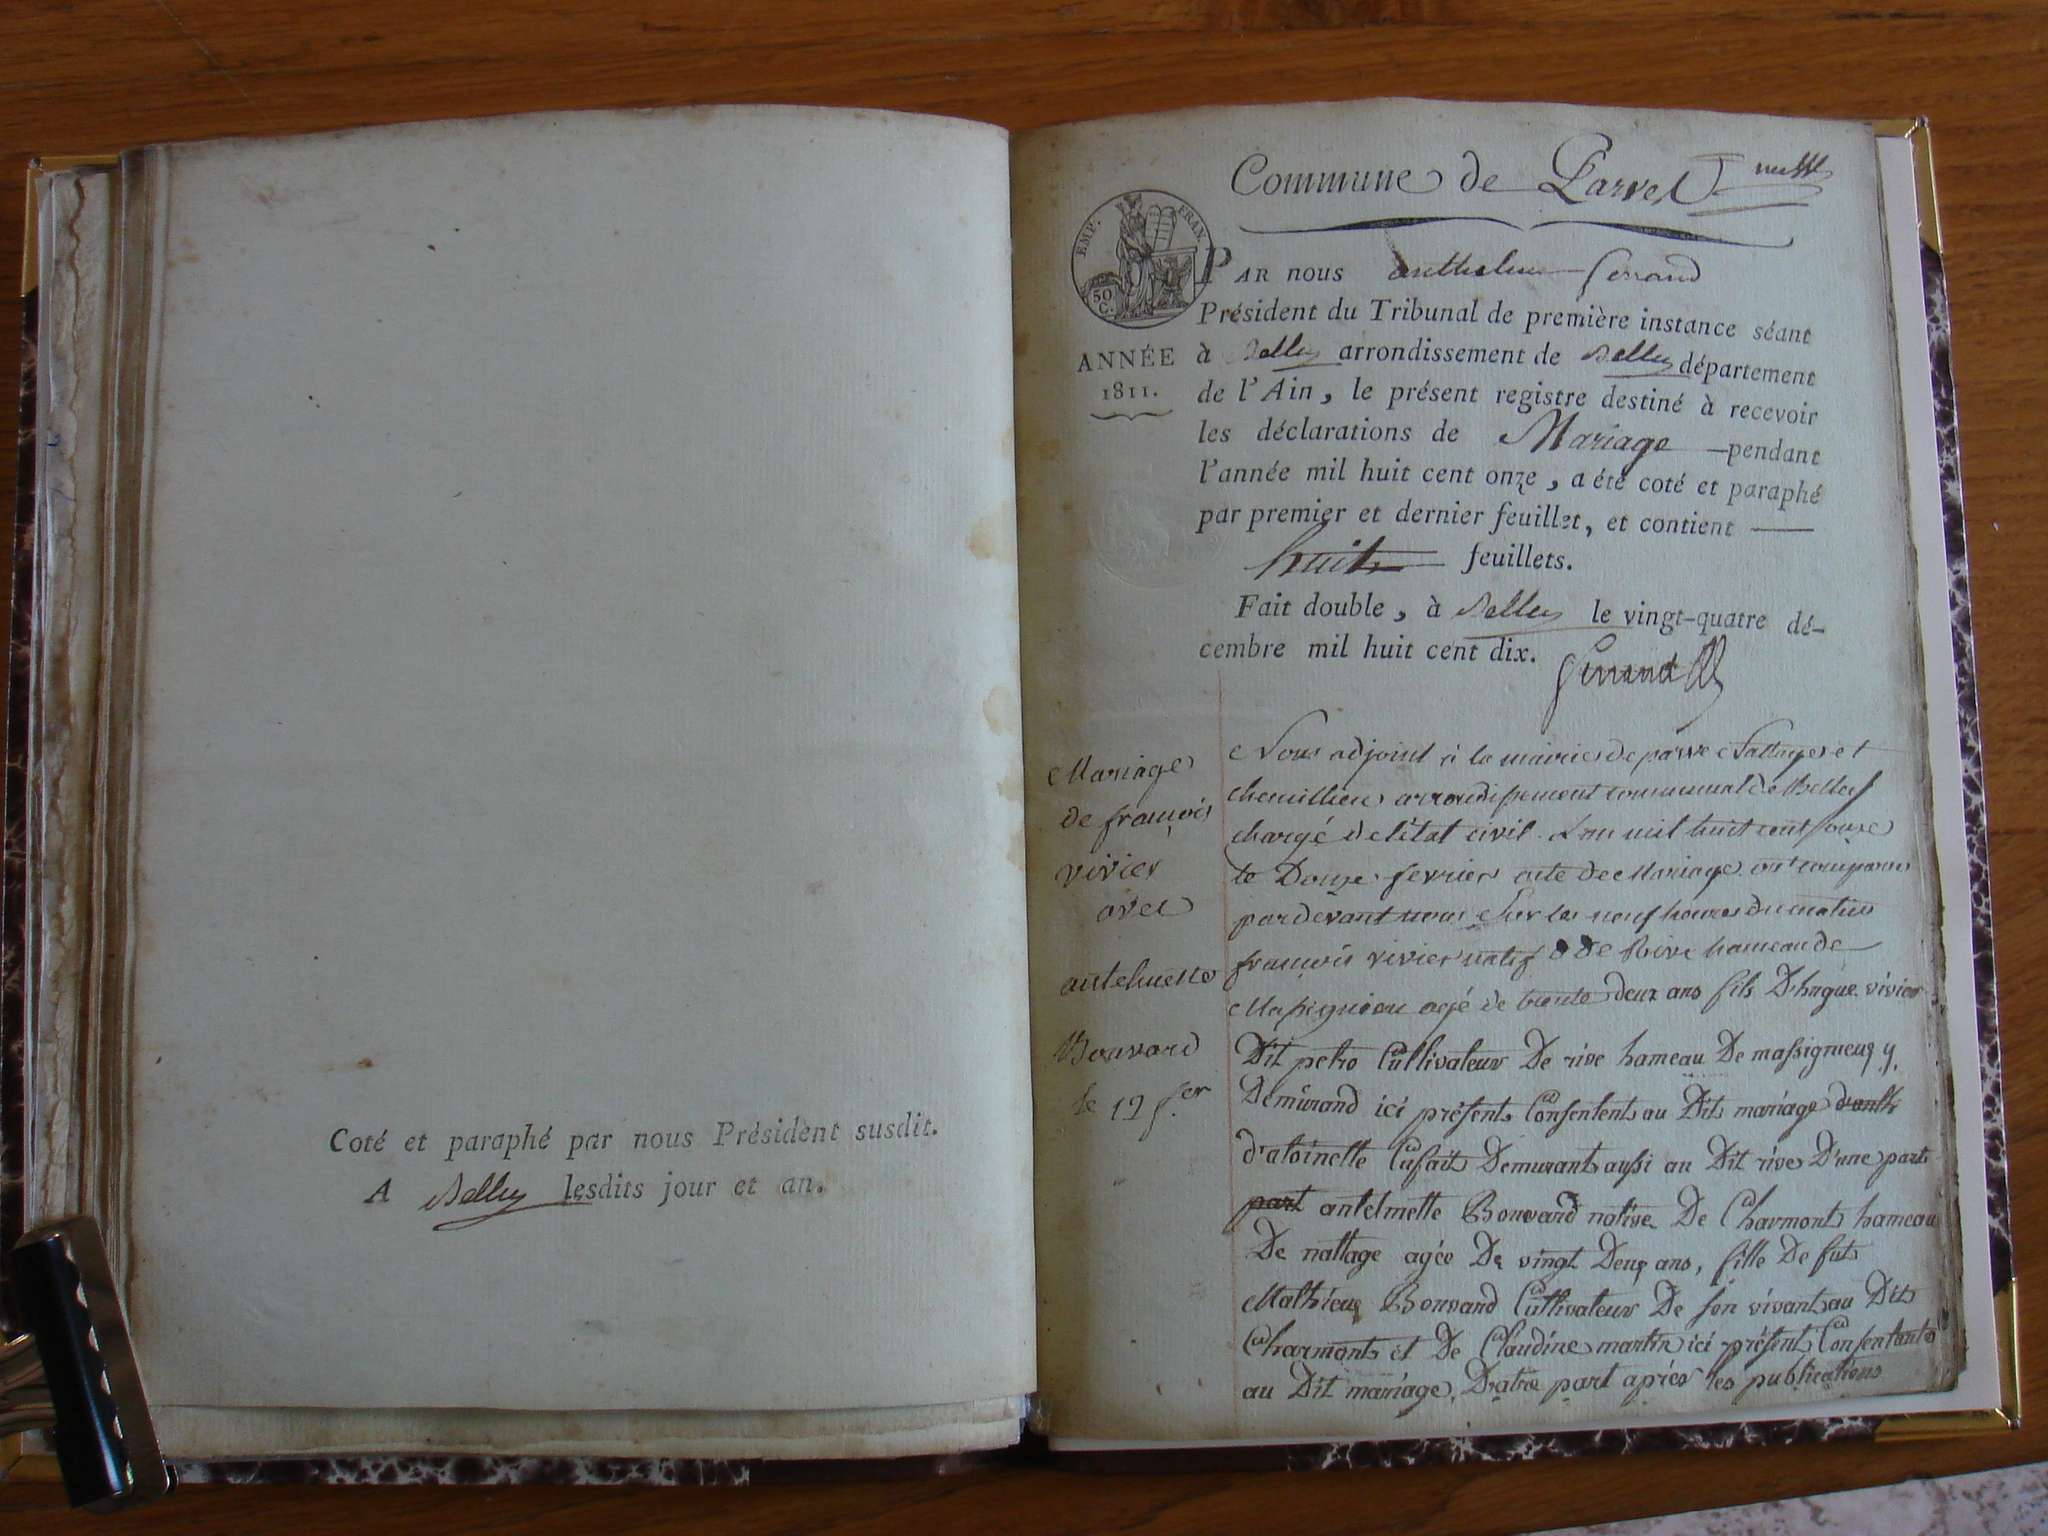 Coté et paraphé par nous Président susdit.
A Belley lesdits jour et an.
Commune de Parves
EMP. FRAN.
50 C.
PAR nous anthelme ferrand
Président du Tribunal de première instance séant
ANNÉE
1811.
à Belley arrondissement de Belley département
de l'Ain, le présent registre destiné à recevoir
les déclarations de Mariage pendant
l'année mil huit cent onze, a été coté et paraphé
par premier et dernier feuillet, et contient
huit feuillets.
Fait double, à Belley le vingt-quatre dé-
cembre mil huit cent dix.
Mariage
de françois
vivier
avec
antelmette
Bouvard
le 12 fer
Nous adjoint à la mairie de parve Nattage et
chemillieu arrondissement communal de Belley
chargé de létat civil. L'an mil huit cent onze
le Douze fevrier acte de Mariage ont comparu
pardevant nous Sur les neuf heures du matin
françois vivier natif de Rive hameau de
Massignieu agé de trente deux ans fils D'hugue vivier
Dit petro Cultivateur De rive hameau De massignieux y
Demürand ici présent Consentent au Dit mariage
d'atoinette Cusait Demurant aussi au Dit rive D'une part
part antelmette Bouvard native De Charmont hameau
De nattage agée De vingt Deux ans, fille De fut
Mathieux Bonvard Cultivateur De son vivant au Dit
Charmont et De Claudine martin ici présent Consentante
au Dit mariage, D'atre part après les publications